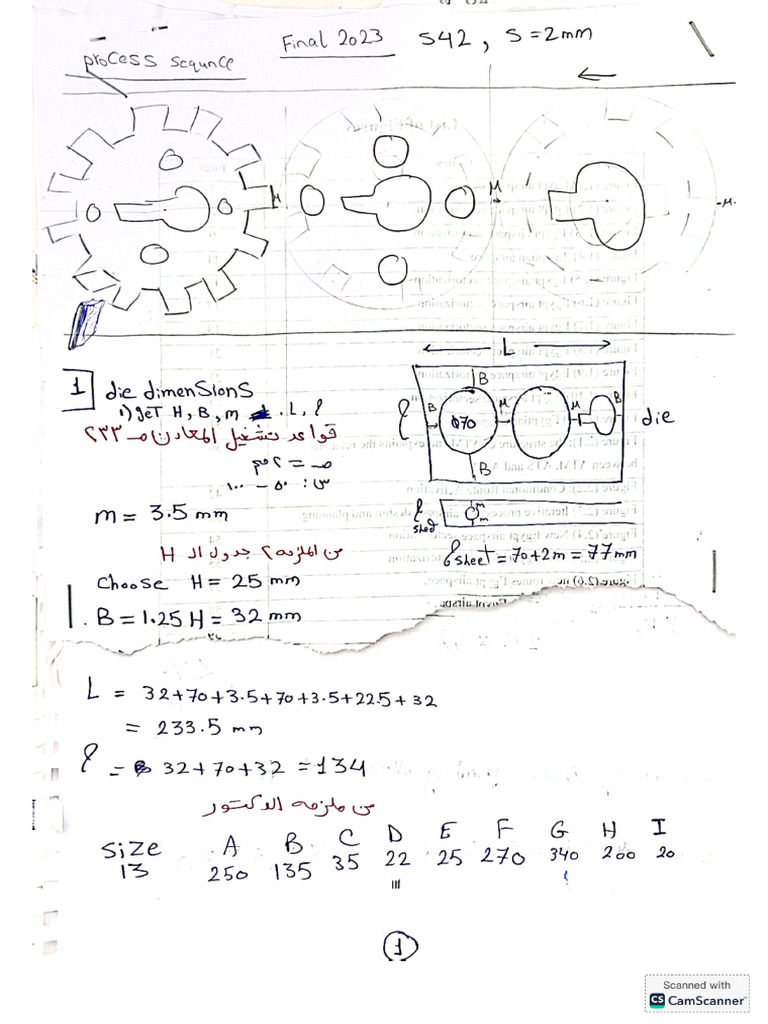 Final 2023 S42, S=2mm
process sequnce
M M M
L
1 die dimensions
1) get H, B, m . L, l
قواعد تشغيل المعادن صـ ٢٣٣
صـ = ٢مم
س: ٥٠ - ١٠٠
m = 3.5 mm
من الملزمة ٢ جدول الـ H
choose H = 25 mm
B = 1.25 H = 32 mm
B
l B Φ70 M M B die
B
l sheet m
m
l sheet = 70+2m = 77mm
L = 32+70+3.5+70+3.5+22.5+32
= 233.5 mm
l = 32+70+32 = 134
من ملزمه الدكتور
size A B C D E F G H I
13 250 135 35 22 25 270 340 200 20
1
Scanned with
CS CamScanner